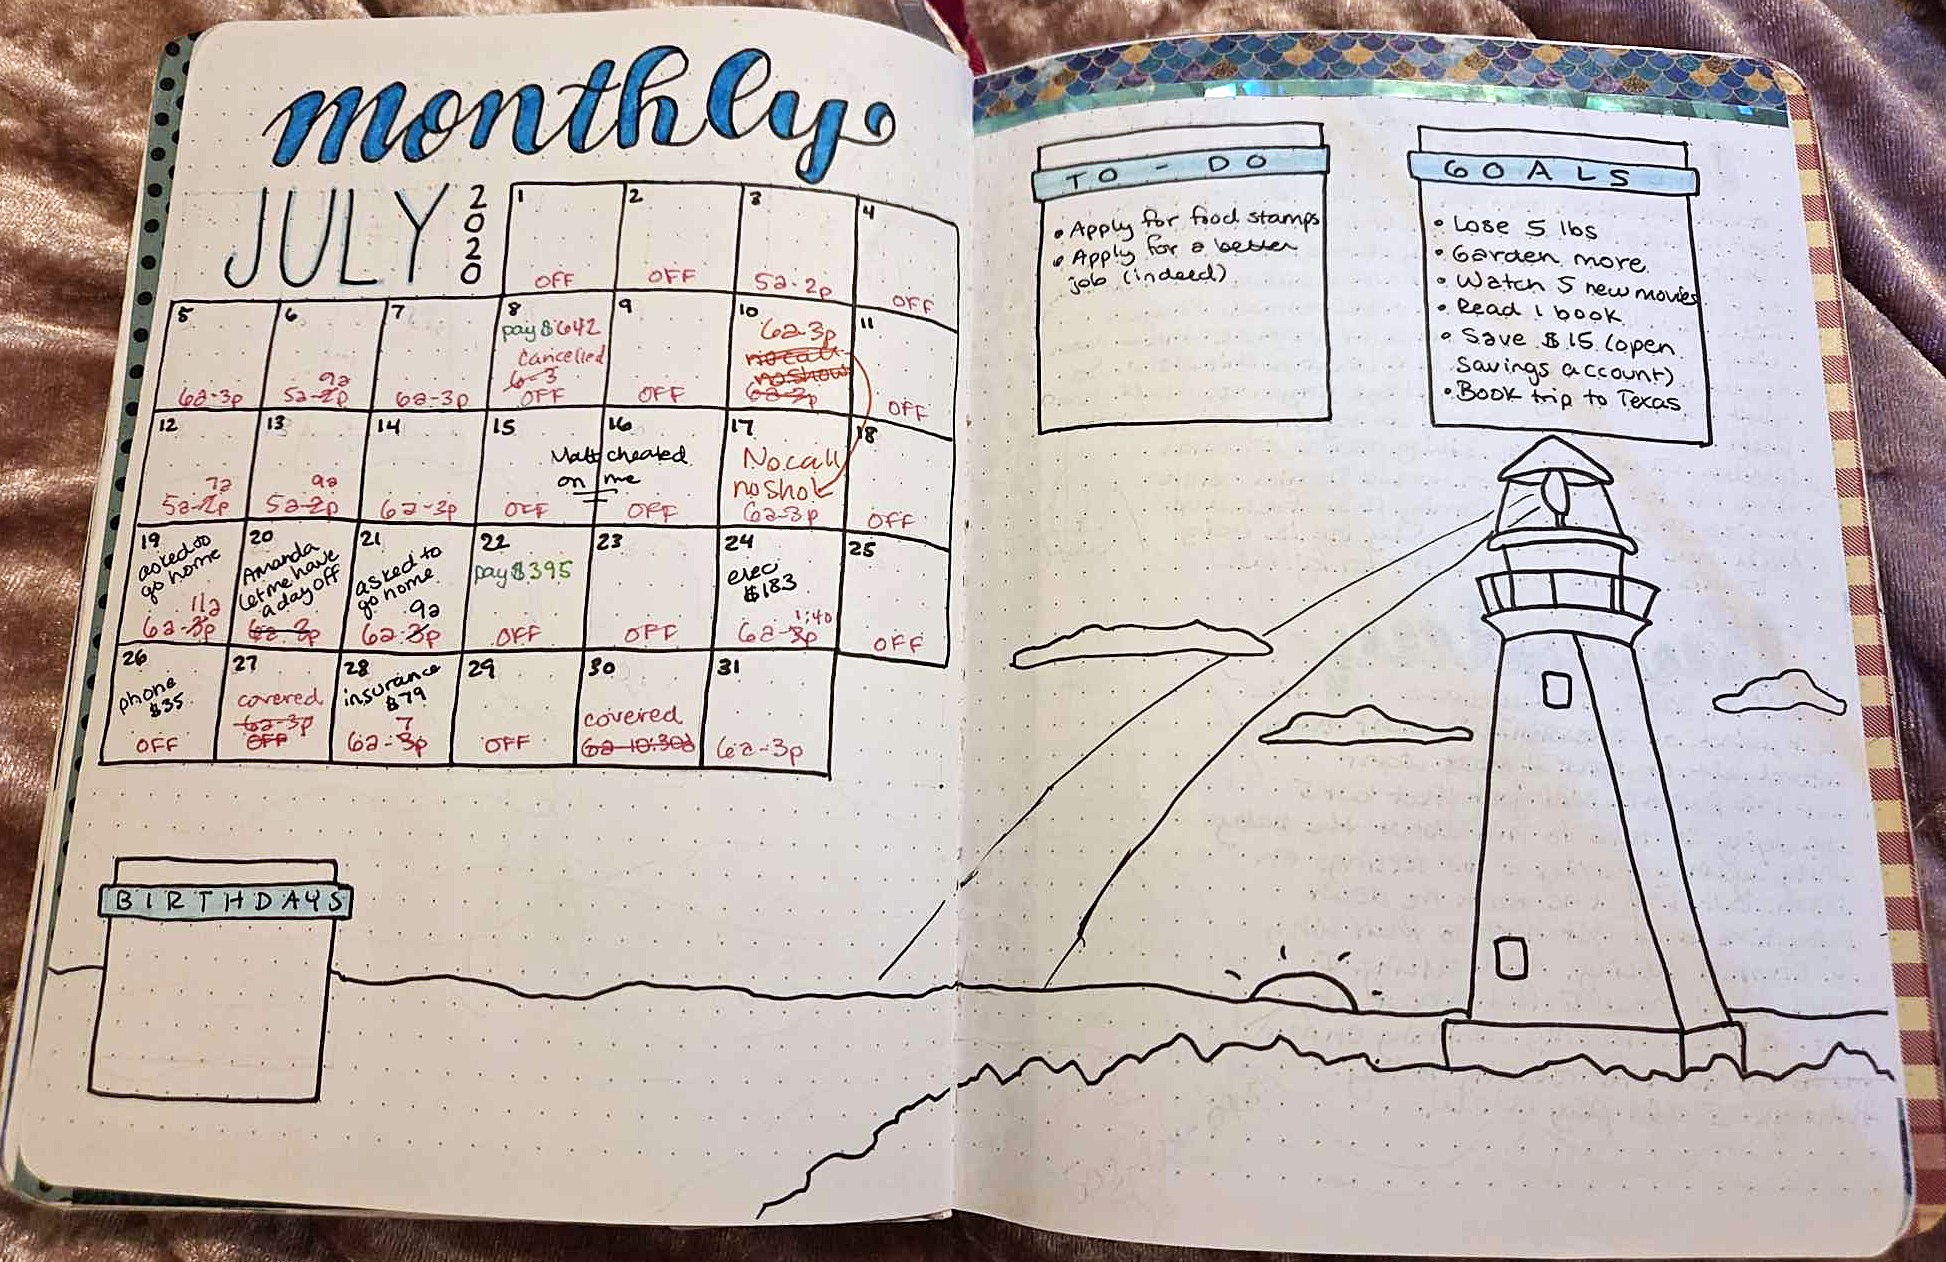 monthly
JULY 2020
1
OFF
2
OFF
3
5a-2p
4
OFF
5
6a-3p
6
9a
5a-2p
7
6a-3p
8
pay $642
Cancelled
6-3
OFF
9
OFF
10
6a-3p
no call
no show
6a-3p
11
OFF
12
7a
5a-2p
13
9a
5a-2p
14
6a-3p
15
OFF
16
Matt cheated
on me
OFF
17
No call
no sho
6a-3p
18
OFF
19
asked to
go home
11a
6a-3p
20
Amanda
let me have
a day off
6a-3p
21
asked to
go home
9a
6a-3p
22
pay $395
OFF
23
OFF
24
elec
$183
1:40
6a-3p
25
OFF
26
phone
$35
OFF
27
covered
6a-3p
OFF
28
insurance
$79
7
6a-3p
29
OFF
30
covered
6a-10:30a
31
6a-3p
BIRTHDAYS
TO-DO
• Apply for food stamps
• Apply for a better
job (indeed)
GOALS
• Lose 5 lbs
• Garden more
• Watch 5 new movies
• Read 1 book
• Save $15 (open
savings account)
• Book trip to Texas